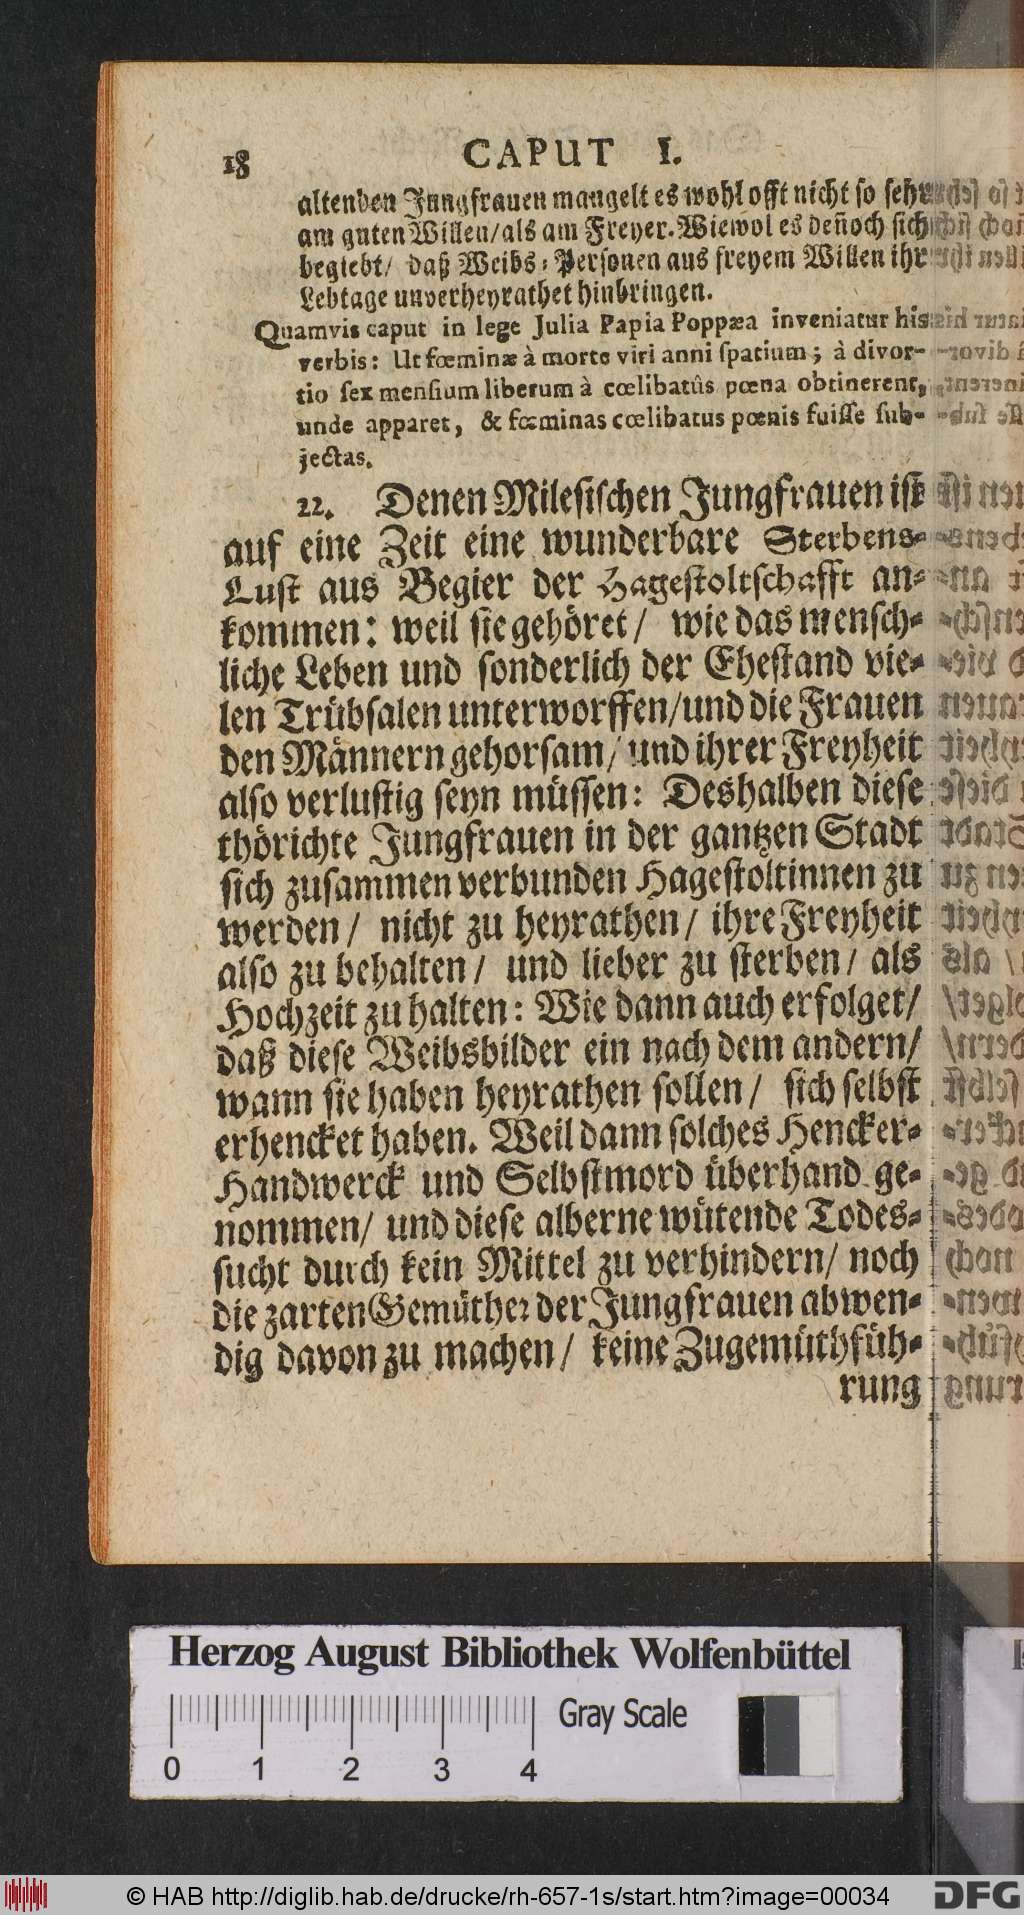 18 CAPUT I.
altenden Jungfrauen mangelt es wohl offt nicht so sehr
am guten Willen/als am Freyer. Wiewol es deñoch sich
begiebt/ daß Weibs-Personen aus freyem Willen ihr
Lebtage unverheyrathet hinbringen.
Quamvis caput in lege Julia Papia Poppæa inveniatur his
verbis: Ut fœminæ à morte viri anni spatium; à divor-
tio sex mensium liberum à cœlibatûs pœna obtinerent,
unde apparet, & fœminas cœlibatus pœnis fuisse sub-
jectas.
22. Denen Milesischen Jungfrauen ist
auf eine Zeit eine wunderbare Sterbens-
Lust aus Begier der Hagestoltschafft an-
kommen: weil sie gehöret/ wie das mensch-
liche Leben und sonderlich der Ehestand vie-
len Trübsalen unterworffen/und die Frauen
den Männern gehorsam/ und ihrer Freyheit
also verlustig seyn müssen: Deshalben diese
thörichte Jungfrauen in der gantzen Stadt
sich zusammen verbunden Hagestoltinnen zu
werden/ nicht zu heyrathen/ ihre Freyheit
also zu behalten/ und lieber zu sterben/ als
Hochzeit zu halten: Wie dann auch erfolget/
daß diese Weibsbilder ein nach dem andern/
wann sie haben heyrathen sollen/ sich selbst
erhencket haben. Weil dann solches Hencker-
Handwerck und Selbstmord überhand ge-
nommen/ und diese alberne wütende Todes-
sucht durch kein Mittel zu verhindern/ noch
die zarten Gemüther der Jungfrauen abwen-
dig davon zu machen/ keine Zugemüthfüh-
rung
Herzog August Bibliothek Wolfenbüttel
Gray Scale
0 1 2 3 4
© HAB http://diglib.hab.de/drucke/rh-657-1s/start.htm?image=00034
DFG